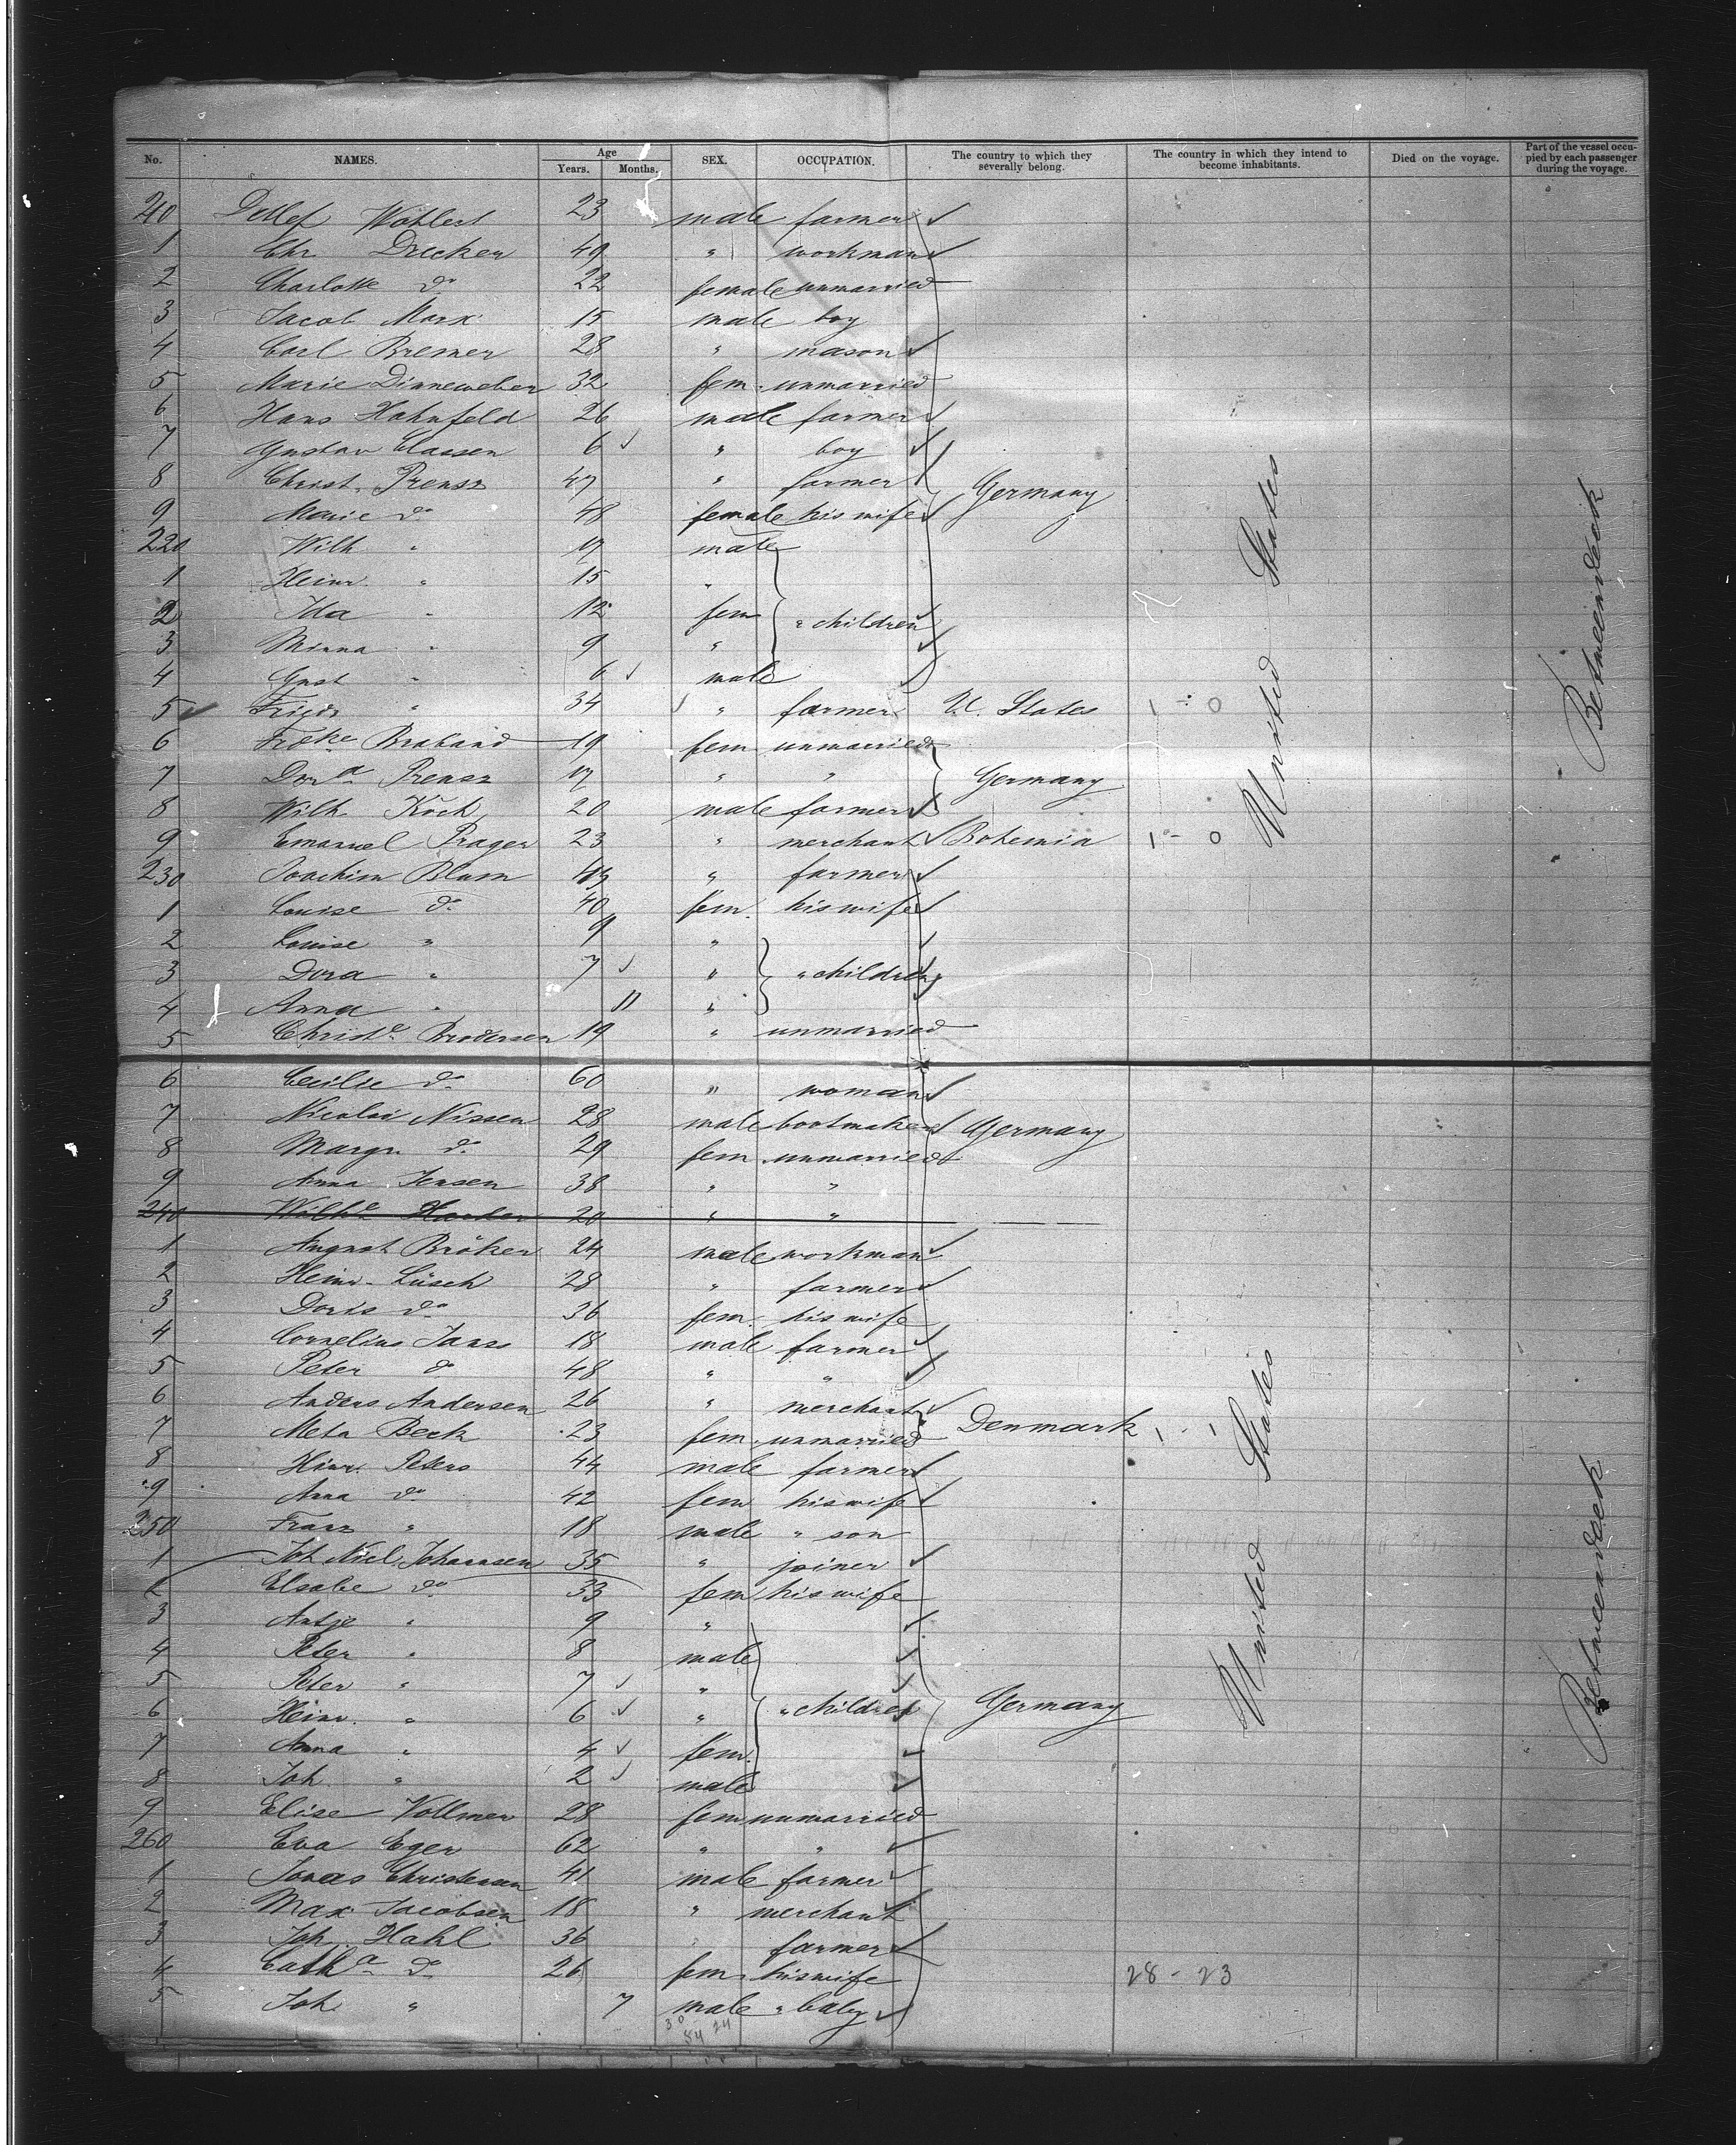 No. NAMES. Age Years. Months. SEX. OCCUPATION. The country to which they severally belong. The country in which they intend to become inhabitants. Died on the voyage. Part of the vessel occupied by each passenger during the voyage.
Detlef Wohlert 23 male farmer
1 Chr. Drecker 49 " workman
2 Charlotte do 22 female unmarried
3 Jacob Marx 15 male boy
4 Carl Bremer 28 " mason
5 Marie Dinneweber 32 fem. unmarried
6 Hans Hahnfeld 26 male farmer
7 Gustav Classen 6 " boy
8 Christ. Prensz 47 " farmer Germany
9 Marie do 48 female his wife
220 Wilh " 17 male
1 Heinr. " 15 "
2 Ida " 12 fem " children
3 Minna " 9 "
4 Gust " 6 male
5 " 34 " farmer U. States 1 - 0
6 Fredke Braband 19 fem unmarried
7 Dora Prensz 17 " " Germany
8 Wilh. Koch 20 male farmer
9 Emanuel Prager 23 " merchant Bohemia 1 - 0
230 Joachim Blum " farmer
1 Louise do 40 fem. his wife
2 Louise " 9 "
3 Dora " 7 " " children
4 Anna " 11 "
5 Christe Brodersen 19 " unmarried
United States
Betweendeck
6 Cecilie do 60 " woman
7 Nicolai Nissen 28 male bootmaker Germany
8 Margr. do 29 fem unmarried
9 Anna Jensen 38 " "
240 Wilhe 20 " "
1 August Bröker 24 male workman
2 Heinr. Lüsch 28 " farmer
3 Doris do 36 fem. his wife
4 Cornelius Janss 18 male farmer
5 Peter do 48 " "
6 Anders Andersen 26 " merchant
7 Meta Beck 23 fem. unmarried Denmark 1 - 1
8 Hinr. Peters 44 male farmer
9 Anna do 42 fem his wife
250 Franz " 18 male " son
1 Joh Nicl. Johannsen 35 " joiner
2 Elsabe do 33 fem his wife
3 Antje " 9 "
4 Peter " 8 male
5 Peter " 7 "
6 Heinr. " 6 " " children Germany
7 Anna " 4 fem.
8 Joh " 2 male
9 Elise Vollmer 28 fem unmarried
260 Eva Eger 62 " "
1 Jonas Christensen 41 male farmer
2 Max Jacobsen 18 " merchant
3 Joh. Hahl 36 " farmer
4 Catha do 26 fem. his wife 28 - 23
5 Joh " 7 male " baby
United States
Betweendeck